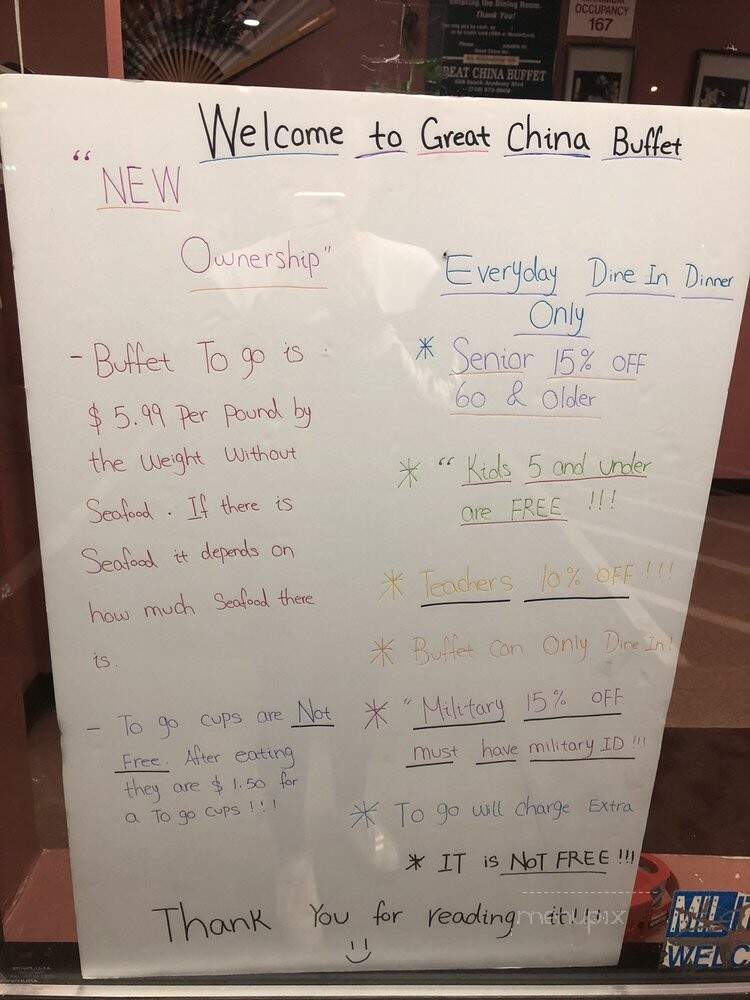 Empting the Dining Room.
Thank You!
OCCUPANCY
167
GREAT CHINA BUFFET
Welcome to Great China Buffet
“NEW
Ownership”
- Buffet To go is
$5.99 Per Pound by
the Weight Without
Seafood. If there is
Seafood it depends on
how much Seafood there
is.
- To go cups are Not
Free. After eating
they are $1.50 for
a To go cups !!!
Everyday Dine In Dinner
Only
* Senior 15% OFF
60 & Older
* “ Kids 5 and under
are FREE !!!
* Teachers 10% OFF !!!
* Buffet can Only Dine In!
* “ Military 15% OFF
must have military ID !!!
* To go will charge Extra
* IT is NOT FREE !!!
Thank You for reading it!!!
menupix
MILIT
WELC